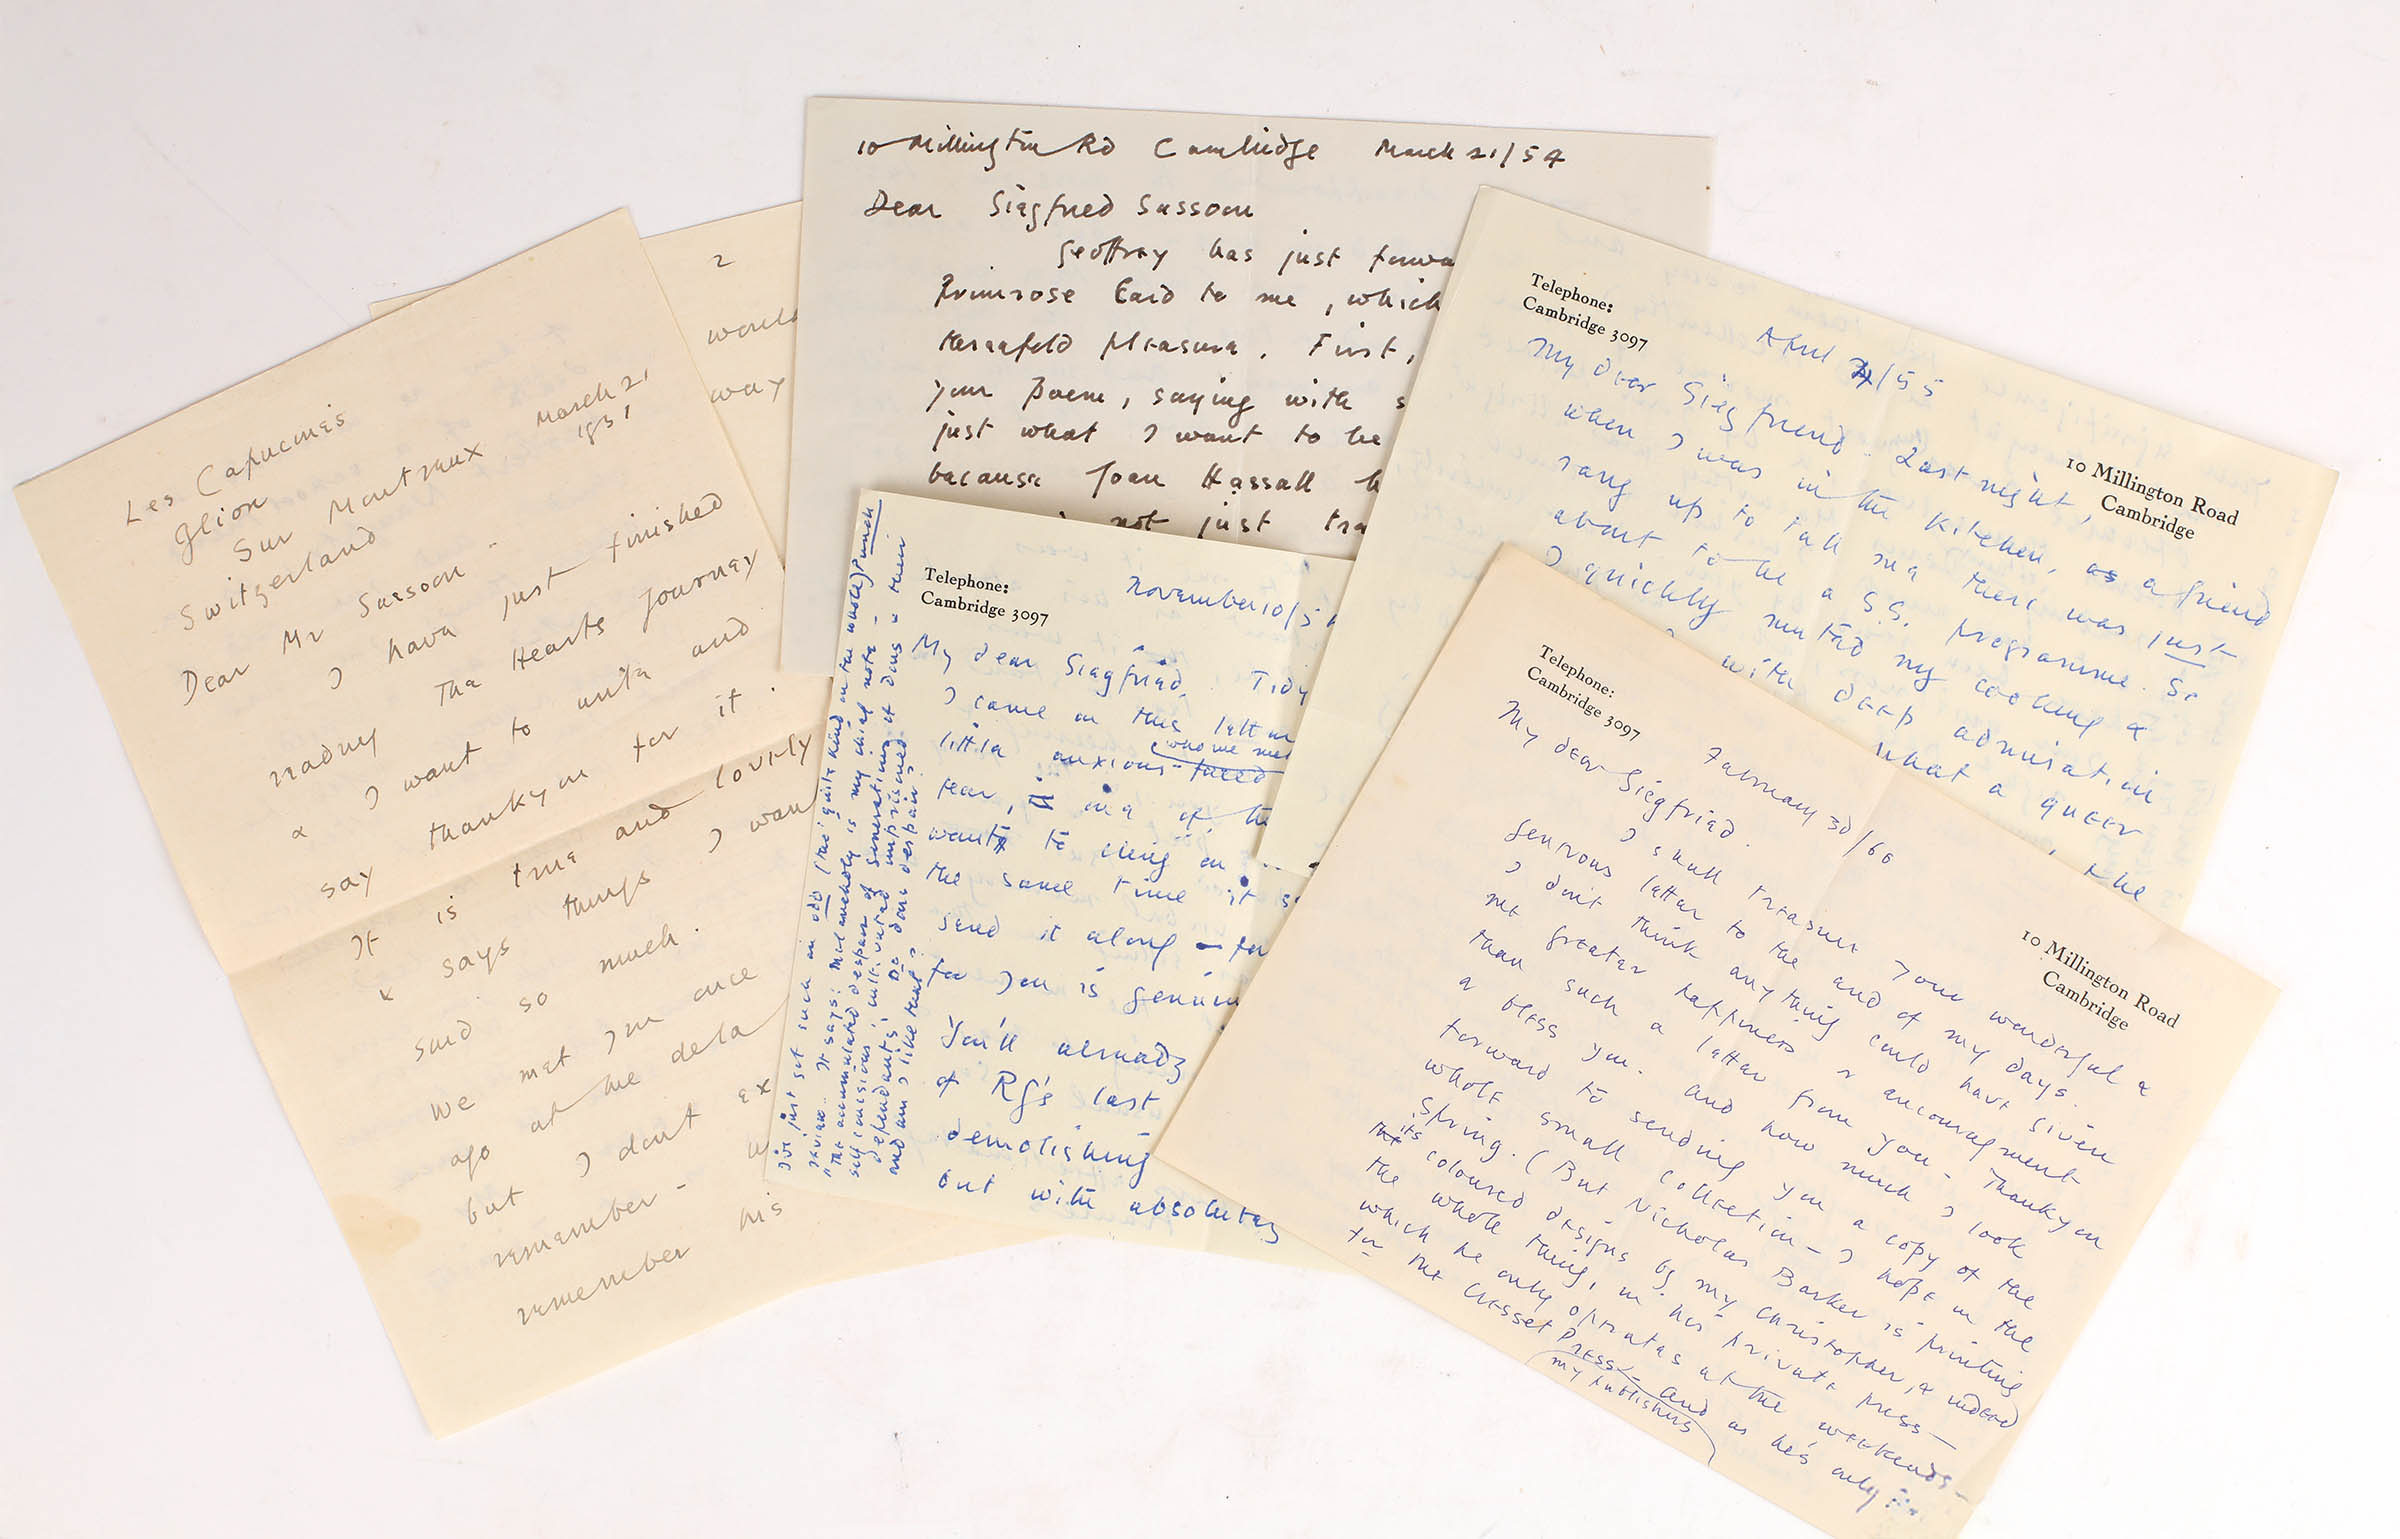 Les Capucines
Glion
Sur Montreux March 21
Switzerland 1931
Dear Mr Sassoon.
I have just finished
reading The Hearts Journey
& I want to write and
say thankyou for it.
It is true and lovely
& says things I
said so much.
We met once
ago at the de la
but I dont
remember -
remember his
2
would
way
10 Millington Rd Cambridge March 21/54
Dear Siegfried Sassoon
Geoffrey has just
Primrose Card to me, which
threefold pleasure. First,
your Poem, saying with
just what I want to be
because Joan Hassall
not just
Telephone:
Cambridge 3097
November 10/5
My dear Siegfried. Tidy
I came on this
little anxious
fear, in one of the
wants to cling on
the same time it
send it along - for
for you is
You'll already
of RG's last
demolishing
out with absolutely
I've just got such an odd (tho' quite kind on the whole) Punch
review. It says: Melancholy is my chief note -
"The accumulated despair of generations of Dons & their
self conscious, cultivated imprisoned
dependants'. Do dons despair?
and am I like that?
Telephone:
Cambridge 3097
10 Millington Road
Cambridge
April /55
My dear Siegfried. Last night,
when I was in the kitchen, as a friend
rang up to tell me there was just
about to be a S.S. programme. So
I quickly my cooking &
with deep admiration
what a queer
the
Telephone:
Cambridge 3097
10 Millington Road
Cambridge
February 30/60
My dear Siegfried.
I shall treasure your wonderful &
generous letter to the end of my days.
I don't think anything could have given
me greater happiness & encouragement
than such a letter from you - Thankyou
& bless you. And how much I look
forward to sending you a copy of the
whole small collection - I hope in the
Spring. (But Nicholas Barker is printing
its coloured designs by my Christopher, & indeed
the whole thing, in his private press -
which he only operates at the weekends -
for the Cresset Press - and as he's only
my publishers